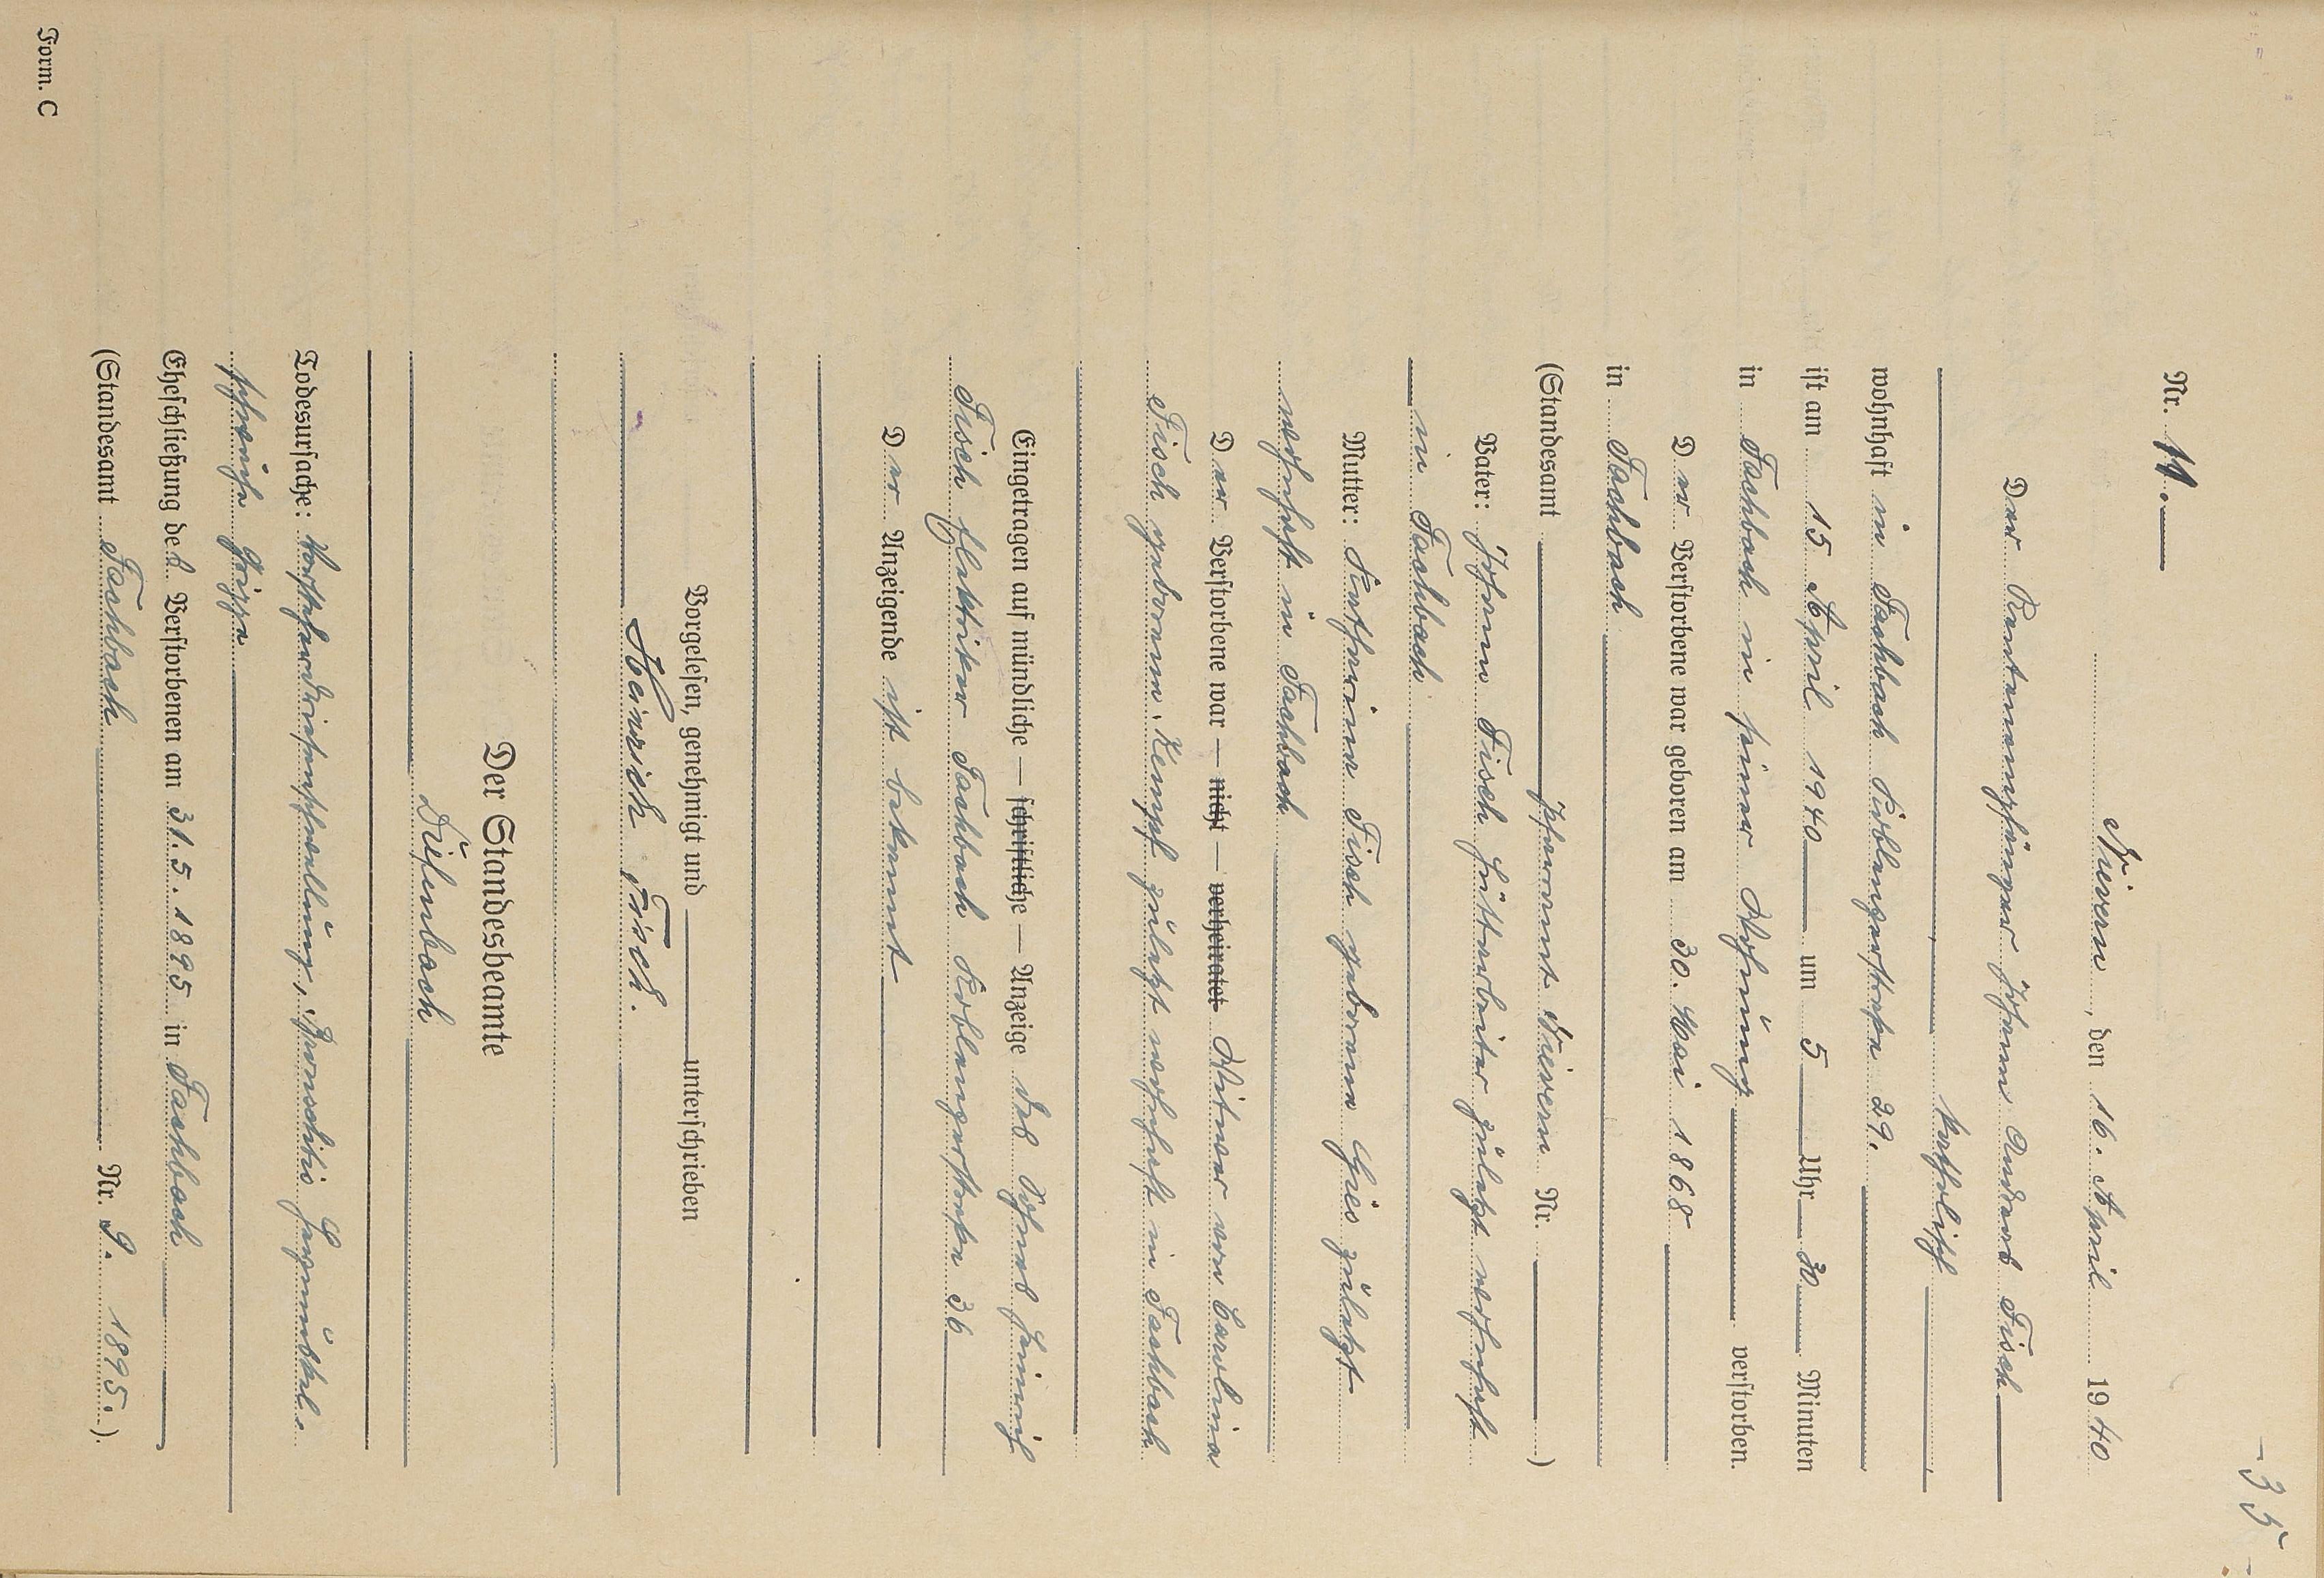 - 35 -
Nr. 11.
Nievern, den 16. April 1940
Der Rentenempfänger Johann Andreas Fisch
katholisch
wohnhaft in Fachbach Koblenzerstraße 29.
ist am 15 April 1940 um 5 Uhr 30 Minuten
in Fachbach in seiner Wohnung verstorben.
Der Verstorbene war geboren am 30. Mai 1868
in Fachbach
(Standesamt Pfarramt Nievern Nr. )
Vater: Johann Fisch Hüttenarbeiter zuletzt wohnhaft
in Fachbach
Mutter: Katharina Fisch geborene Gies zuletzt
wohnhaft in Fachbach
Der Verstorbene war — nicht — verheiratet Witwer von Carolina
Fisch geborenen Kempf zuletzt wohnhaft in Fachbach
Eingetragen auf mündliche — schriftliche — Anzeige des Sohnes Heinrich
Fisch Elektriker Fachbach Koblenzerstraße 36
Der Anzeigende ist bekannt
Vorgelesen, genehmigt und unterschrieben
Heinrich Fisch.
Der Standesbeamte
Düsenbach
Todesursache: Vorsteherdrüsenschwellung, Bronchitis Herzmuskel.
schwäche Grippe
Eheschließung des Verstorbenen am 31.5.1895 in Fachbach
(Standesamt Fachbach Nr. 9. 1895.).
Form. C